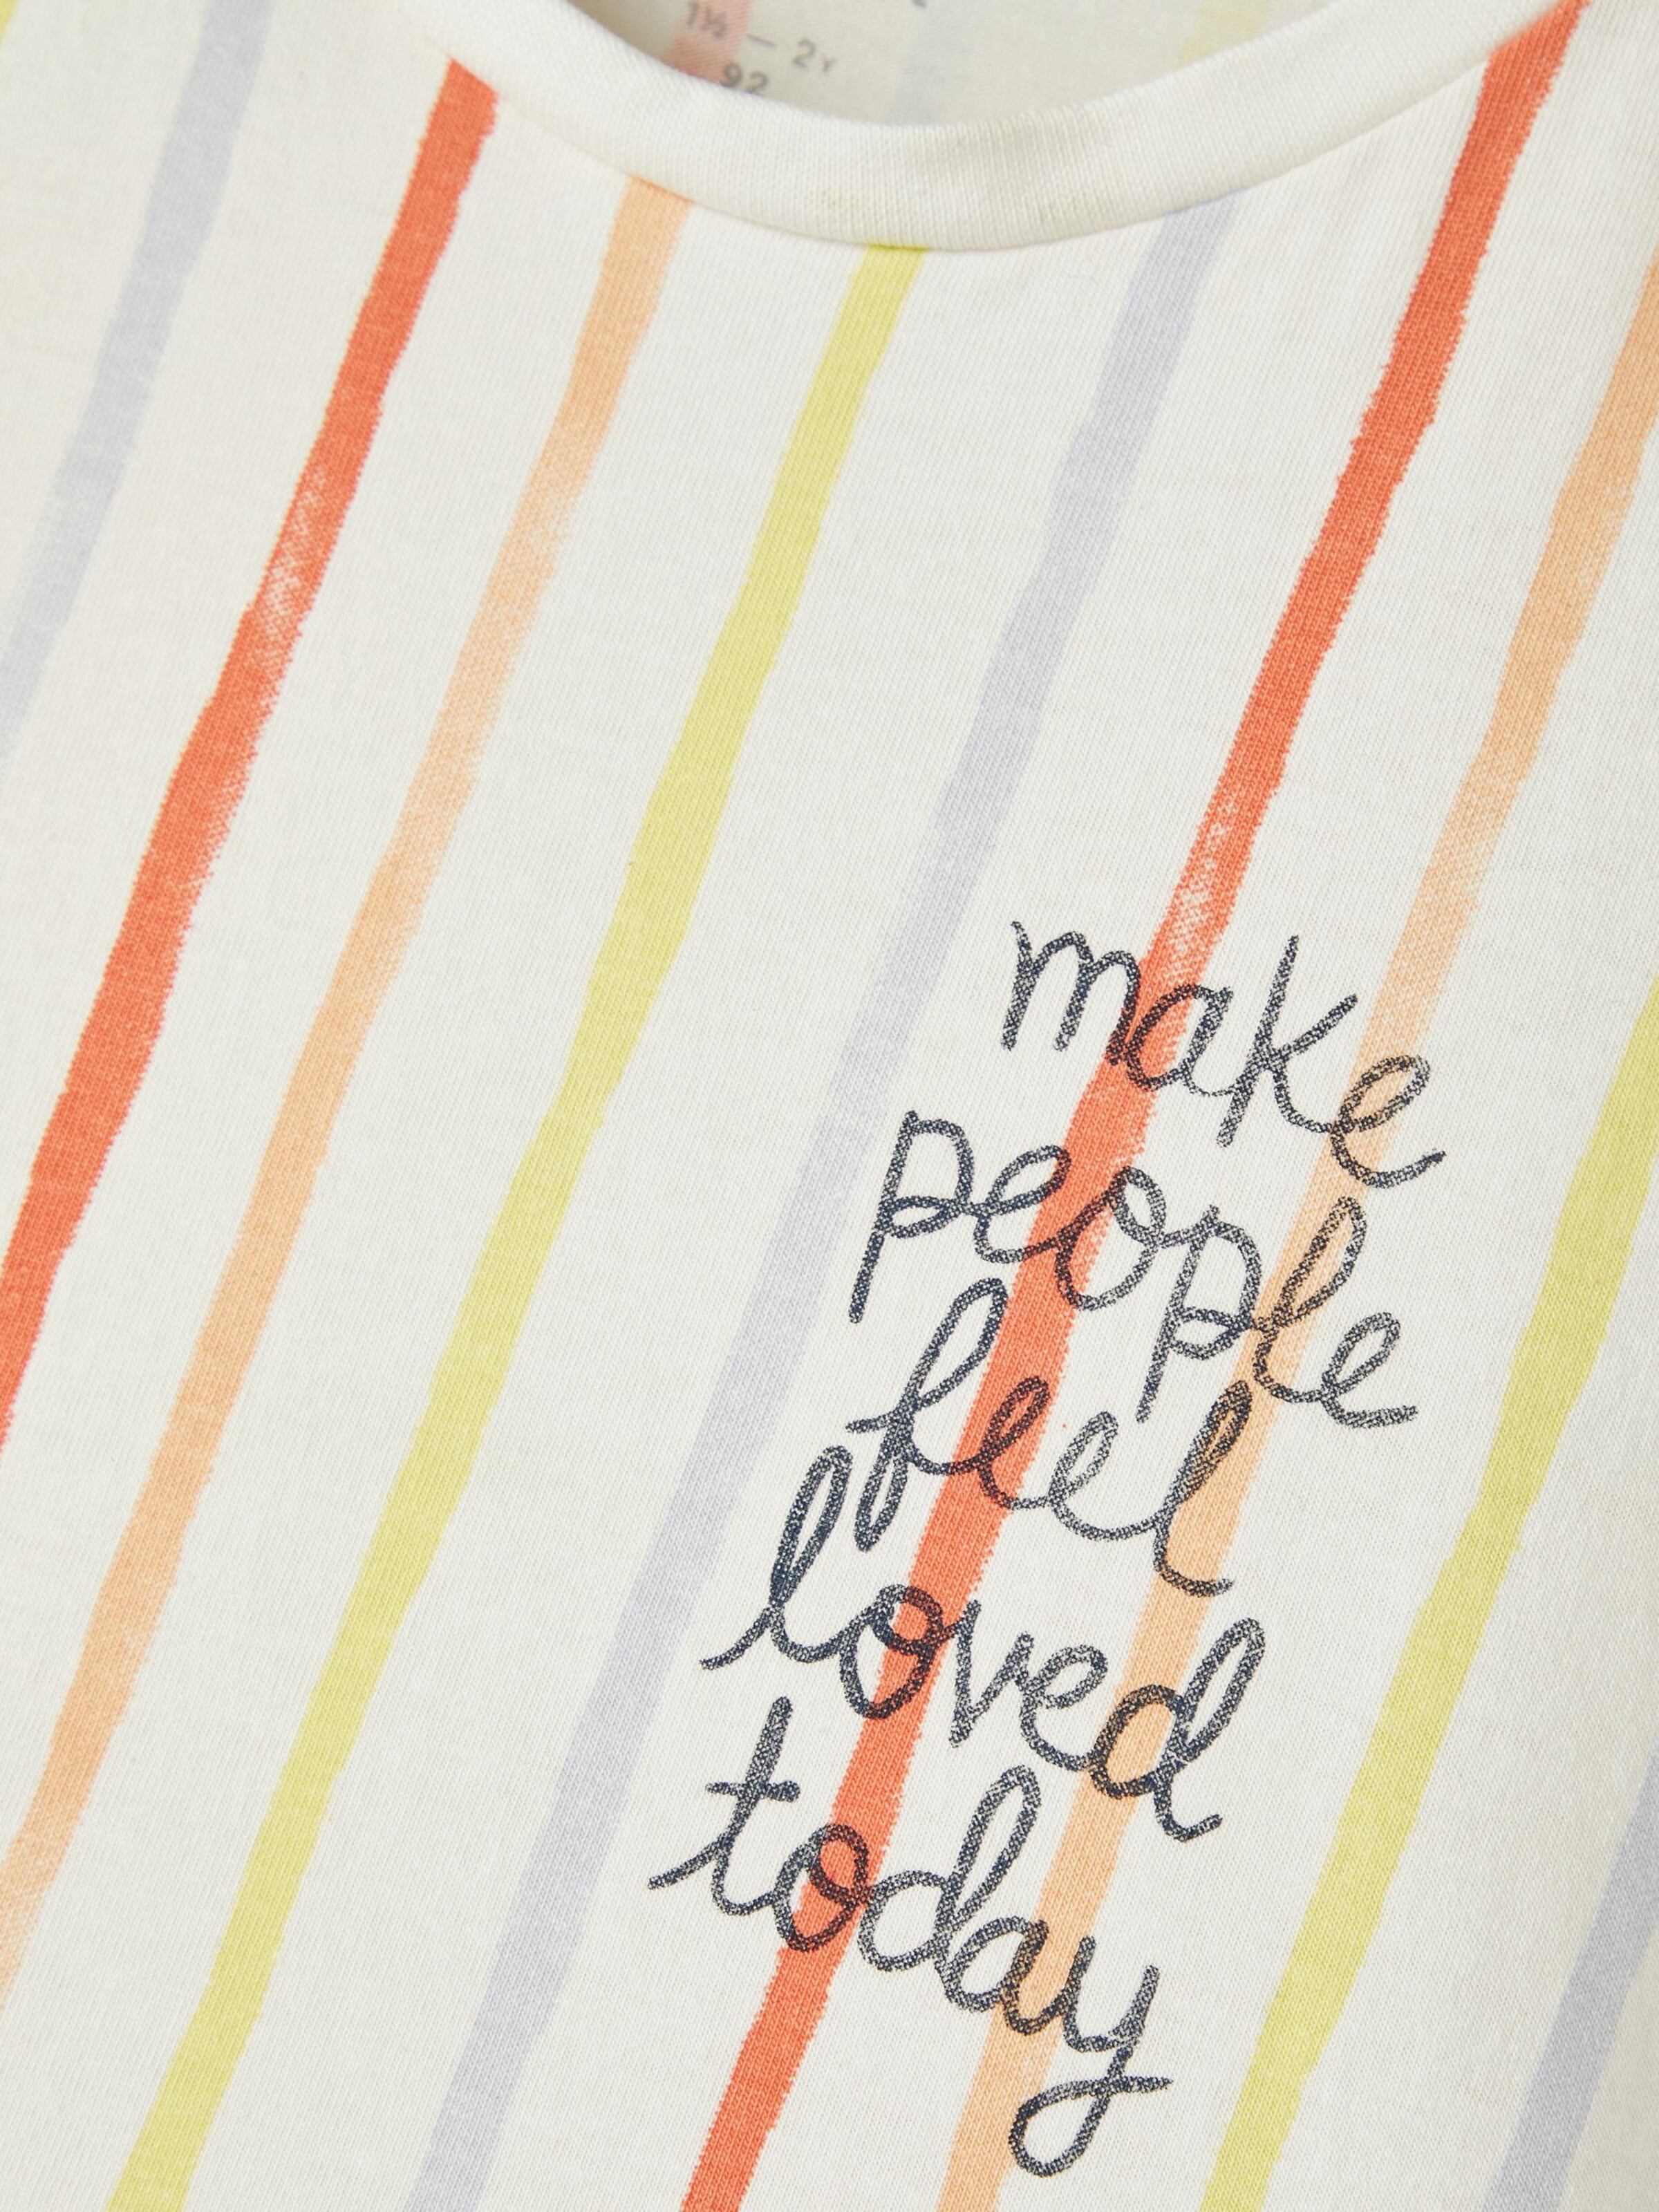 1½ — 2Y
92
make
people
feel
loved
today